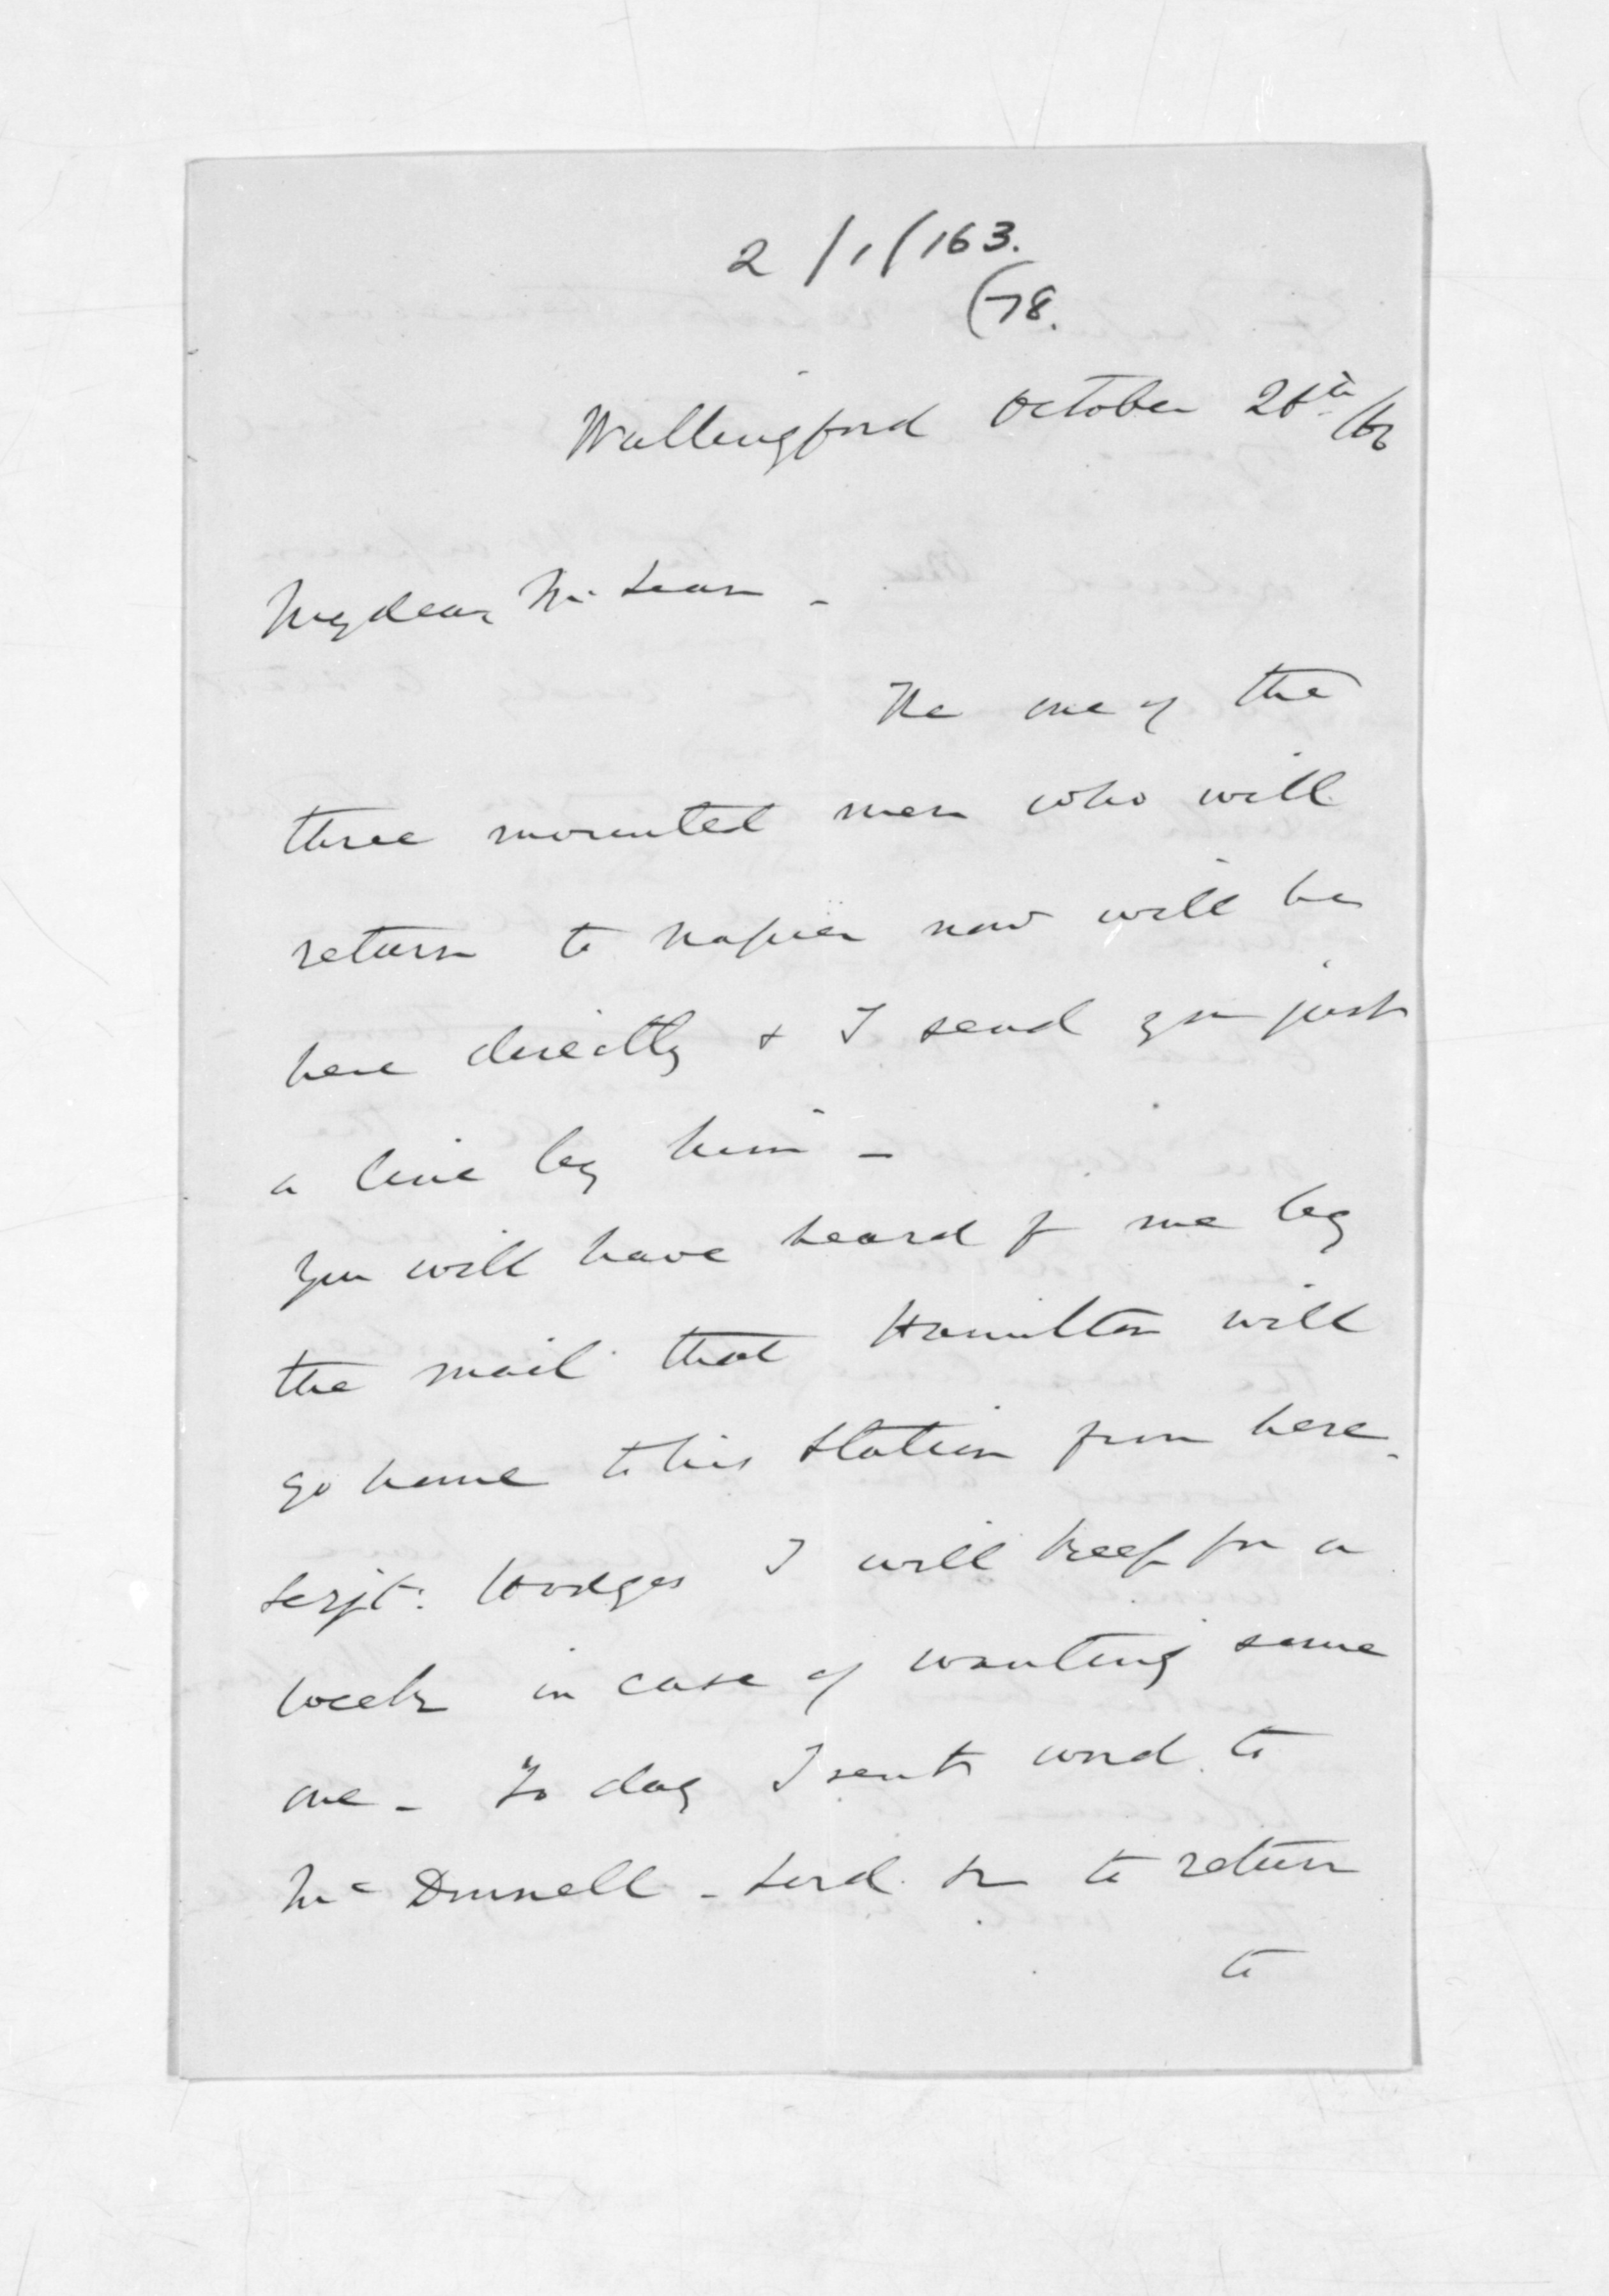 2/1/163.
(78.
Wallingford October 26th /66
My dear McLean -
The one of the
three mounted men who will
return to Napier now will be
here directly & I send you just
a line by him -
You will have heard of me by
the mail that Hamilton will
go home to his station from here.
Serjt: Hodges I will keep for a
week in case of wanting some
one - To day I sent word to
McDonnell - to return
to